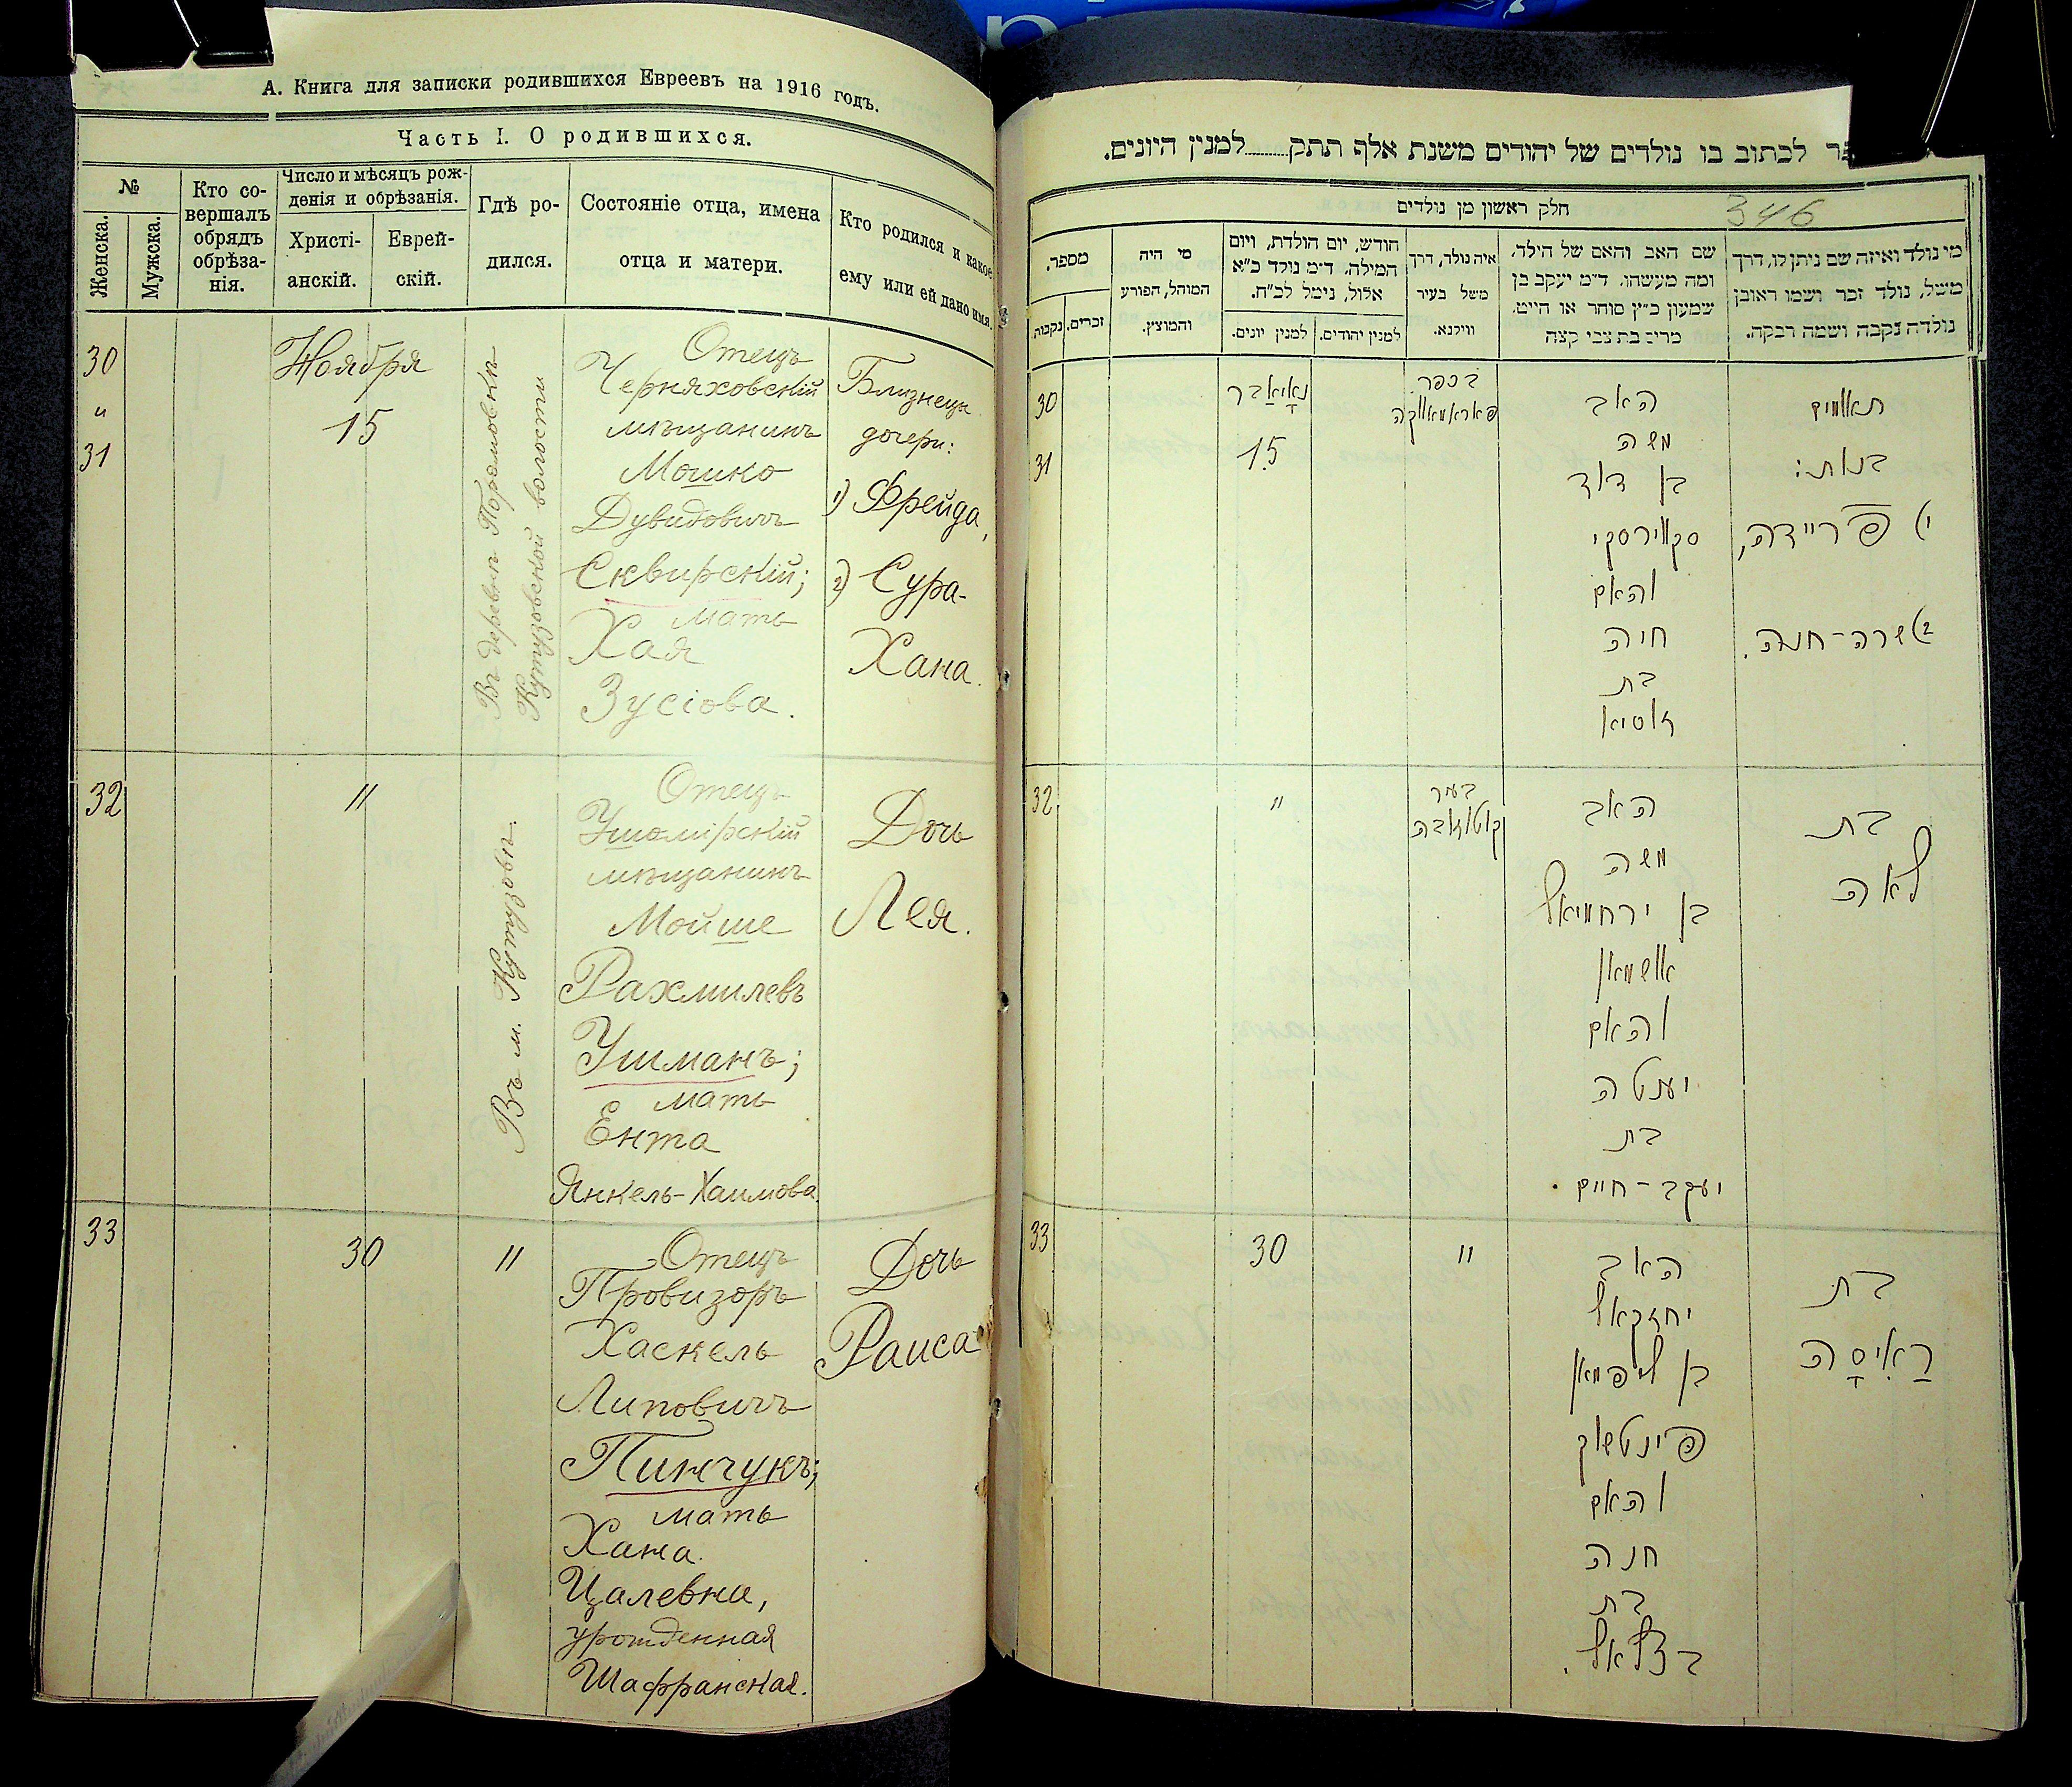 А. Книга для записки родившихся Евреевъ на 1916 годъ.
Часть I. О родившихся.
№
Женска.
Мужска.
Кто со-
вершалъ
обрядъ
обрѣза-
нія.
Число и мѣсяцъ рож-
денія и обрѣзанія.
Христі-
анскій.
Еврей-
скій.
Гдѣ ро-
дился.
Состояніе отца, имена
отца и матери.
Кто родился и какое
ему или ей дано имя.
30
"
31
Ноября
15
Въ деревнѣ
Кутузовской волости
Отецъ
Черняховскій
мѣщанинъ
Мошко
Дувидовичъ
Сквирскій;
мать
Хая
Зусіова.
Близнецы
дочери:
1) Фрейда,
2) Сура-
Хана.
32
"
Въ м. Кутузовѣ.
Отецъ
Ушомірскій
мѣщанинъ
Мойше
Рахмилевъ
Ушманъ;
мать
Ента
Янкель-Хаимова.
Дочь
Лея.
33
30
"
Отецъ
Провизоръ
Хаскель
Липовичъ
Пинчукъ;
мать
Хана
Цалевна,
урожденная
Шафранская.
Дочь
Раиса
לכתוב בו נולדים של יהודים משנת אלף תתק........למנין היונים.
חלק ראשון מן נולדים
346
מספר.
נקבות
זכרים.
מי היה
המוהל, הפורע
והמוצץ.
חודש, יום הולדת, ויום
המילה, ד״מ נולד כ״א
אלול, נימל לכ״ח.
למנין יונים.
למנין יהודים.
איה נולד, דרך
משל בעיר
ווילנא.
שם האב והאם של הילד,
ומה מעשהו, ד״מ יעקב בן
שמעון כ״ץ סוחר או חייט,
מרים בת צבי קצה
מי נולד ואיזה שם ניתן לו, דרך
משל, נולד זכר ושמו ראובן
נולדה נקבה ושמה רבקה.
30
31
נאיאבר
15
בכפר
האב
משה
בן דוד
סקווירסקי
והאם
חיה
בת
זוסיא
תאומים
בנות:
1) פריידה,
2) שרה-חנה.
32
"
בעיר
קוטוזובה
האב
משה
בן ירחמיאל
אושמאן
והאם
יענטה
בת
יעקב-חיים.
בת
לאה
33
30
"
האב
יחזקאל
בן ליפמאן
פינטשוק
והאם
חנה
בת
בצלאל.
בת
ראיסה